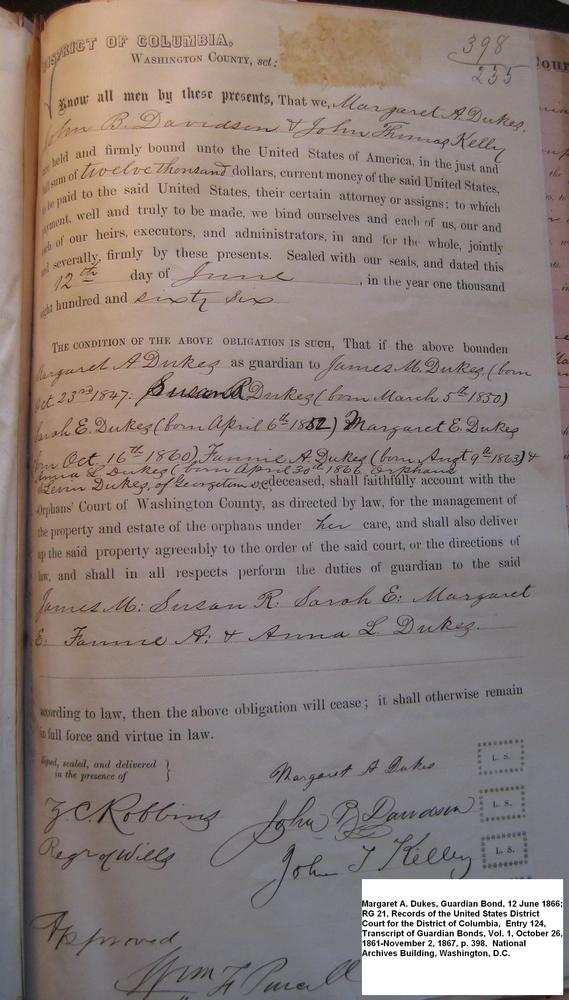 DISTRICT OF COLUMBIA,
WASHINGTON COUNTY, sct:
398
235
Know all men by these presents, That we, Margaret A. Dukes,
John B. Davidson & John Thomas Kelly
are held and firmly bound unto the United States of America, in the just and
full sum of twelve thousand dollars, current money of the said United States,
to be paid to the said United States, their certain attorney or assigns: to which
payment, well and truly to be made, we bind ourselves and each of us, our and
each of our heirs, executors, and administrators, in and for the whole, jointly
and severally, firmly by these presents. Sealed with our seals, and dated this
12th day of June, in the year one thousand
eight hundred and sixty six
THE CONDITION OF THE ABOVE OBLIGATION IS SUCH, That if the above bounden
Margaret A Dukes as guardian to James M. Dukes, (born
Oct. 23rd 1847. Susan R Dukes (born March 5th 1850)
Sarah E. Dukes (born April 6th 1852) Margaret E. Dukes
born Oct. 16th 1860) Fannie A. Dukes (born Augt 9th 1863) &
Anna L. Dukes (born April 30th 1866 Orphans
Levin Dukes, of Georgetown D.C, deceased, shall faithfully account with the
Orphans' Court of Washington County, as directed by law, for the management of
the property and estate of the orphans under her care, and shall also deliver
up the said property agreeably to the order of the said court, or the directions of
law, and shall in all respects perform the duties of guardian to the said
James M: Susan R. Sarah E: Margaret
E: Fannie A: & Anna L Dukes.
according to law, then the above obligation will cease; it shall otherwise remain
in full force and virtue in law.
Signed, sealed, and delivered }
in the presence of }
Margaret A Dukes L. S.
Z C. Robbins John B Davidson L. S.
Regr of Wills John T Kelley L. S.
Approved
Wm F Purcell
Margaret A. Dukes, Guardian Bond, 12 June 1866;
RG 21, Records of the United States District
Court for the District of Columbia, Entry 124,
Transcript of Guardian Bonds, Vol. 1, October 26,
1861-November 2, 1867, p. 398. National
Archives Building, Washington, D.C.